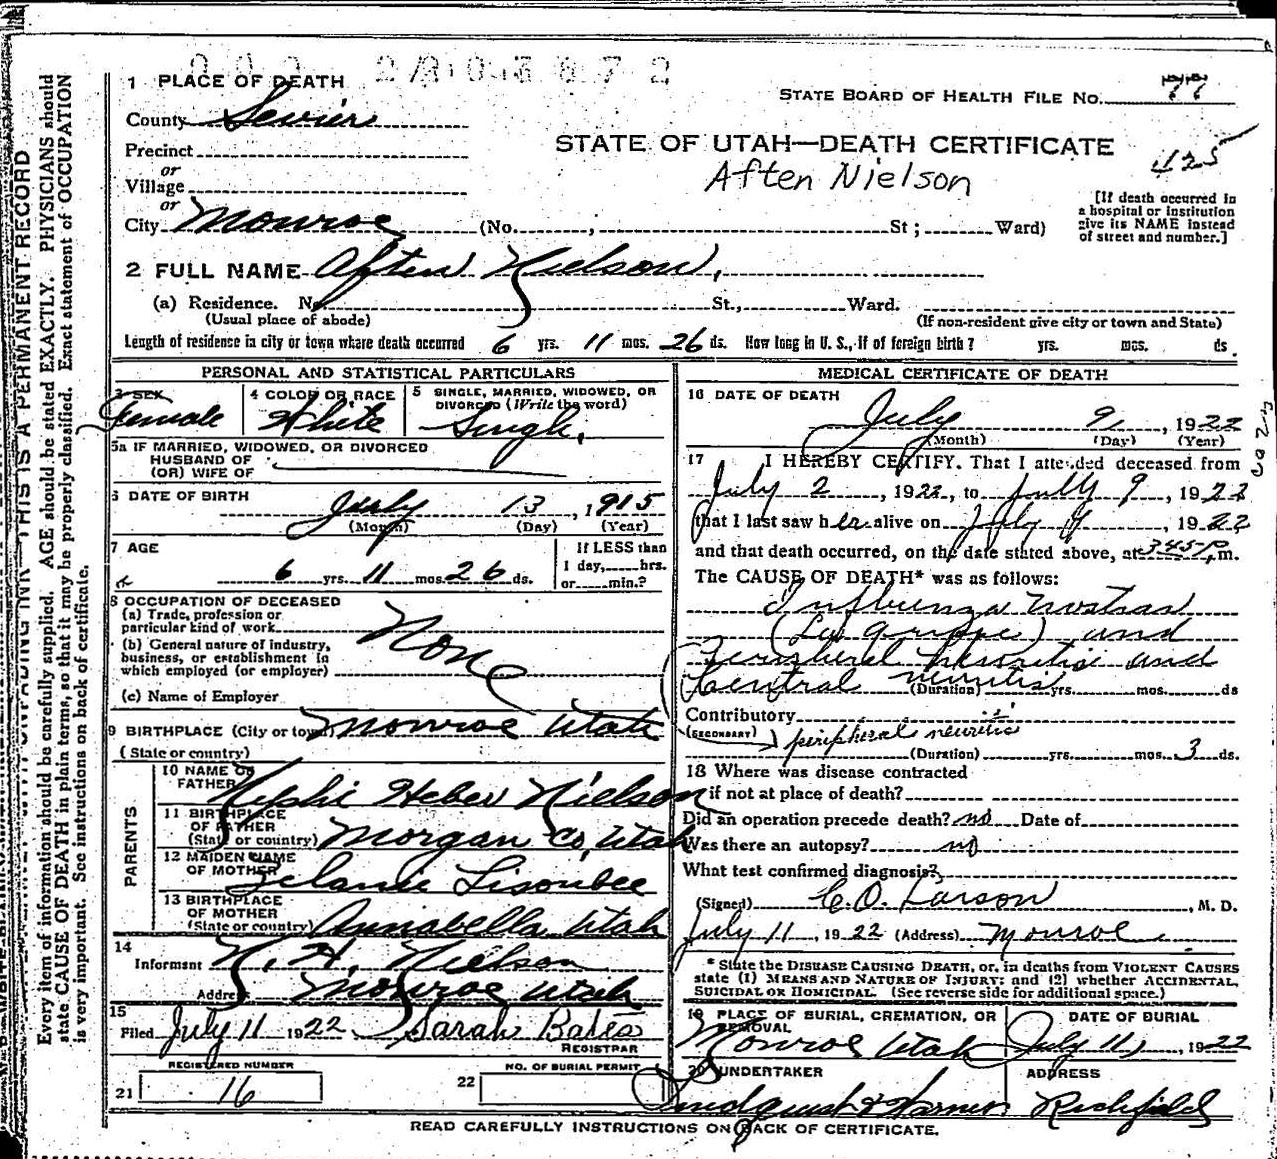 1 PLACE OF DEATH
STATE BOARD OF HEALTH FILE NO. 77
County Sevier
STATE OF UTAH—DEATH CERTIFICATE
425
Precinct
Aften Nielson
or
Village
or
[If death occurred in a hospital or institution give its NAME instead of street and number.]
City Monroe (No. , St ; Ward)
2 FULL NAME Aften Nielson,
(a) Residence. No. St., Ward.
(Usual place of abode) (If non-resident give city or town and State)
Length of residence in city or town where death occurred 6 yrs. 11 mos. 26 ds. How long in U. S., if of foreign birth? yrs. mos. ds.
PERSONAL AND STATISTICAL PARTICULARS
3 SEX Female
4 COLOR OR RACE White
5 SINGLE, MARRIED, WIDOWED, OR DIVORCED (Write the word) Single,
5a IF MARRIED, WIDOWED, OR DIVORCED
HUSBAND OF
(OR) WIFE OF
6 DATE OF BIRTH
July 13, 1915
(Month) (Day) (Year)
7 AGE
6 yrs. 11 mos. 26 ds.
If LESS than
1 day, hrs.
or min.?
8 OCCUPATION OF DECEASED
(a) Trade, profession or
particular kind of work
None
(b) General nature of industry,
business, or establishment in
which employed (or employer)
(c) Name of Employer
9 BIRTHPLACE (City or town) Monroe Utah
(State or country)
PARENTS
10 NAME OF
FATHER Nephi Heber Nielson
11 BIRTHPLACE
OF FATHER
(State or country) Morgan Co, Utah
12 MAIDEN NAME
OF MOTHER Zelanie Lisonbee
13 BIRTHPLACE
OF MOTHER
(State or country) Annabella Utah
14
Informant N. H. Nielson
Address Monroe Utah
15
Filed July 11 1922 Sarah Bates
REGISTRAR
REGISTERED NUMBER
21 16
NO. OF BURIAL PERMIT
22
MEDICAL CERTIFICATE OF DEATH
16 DATE OF DEATH
July 9, 1922
(Month) (Day) (Year)
17 I HEREBY CERTIFY, That I attended deceased from
July 2, 1922, to July 9, 1922
that I last saw her alive on July 9, 1922
and that death occurred, on the date stated above, at 3:45 P.m.
The CAUSE OF DEATH* was as follows:
Influenza nostras
(La Grippe) and
Peripheral neuritis and
Central neuritis (Duration) yrs. mos. ds
Contributory
(SECONDARY) peripheral neuritis
(Duration) yrs. mos. 3 ds.
18 Where was disease contracted
if not at place of death?
Did an operation precede death? no Date of
Was there an autopsy? no
What test confirmed diagnosis?
(Signed) C. O. Larson, M. D.
July 11, 1922 (Address) Monroe
* State the DISEASE CAUSING DEATH, or, in deaths from VIOLENT CAUSES
state (1) MEANS AND NATURE OF INJURY; and (2) whether ACCIDENTAL,
SUICIDAL OR HOMICIDAL. (See reverse side for additional space.)
19 PLACE OF BURIAL, CREMATION, OR REMOVAL
Monroe Utah
DATE OF BURIAL
July 11, 1922
20 UNDERTAKER
ADDRESS
Richfield
READ CAREFULLY INSTRUCTIONS ON BACK OF CERTIFICATE.
THIS IS A PERMANENT RECORD
Every item of information should be carefully supplied. AGE should be stated EXACTLY. PHYSICIANS should
state CAUSE OF DEATH in plain terms, so that it may be properly classified. Exact statement of OCCUPATION
is very important. See instructions on back of certificate.